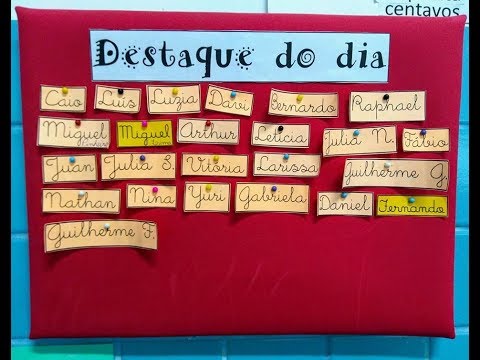 centavos
Destaque do dia
Caio Luis Luzia Davi Bernardo Raphael
Miguel Miguel Arthur Letícia Julia N. Fábio
Juan Julia S. Vitória Larissa Guilherme G.
Nathan Nina Yuri Gabriela Daniel Fernando
Guilherme F.